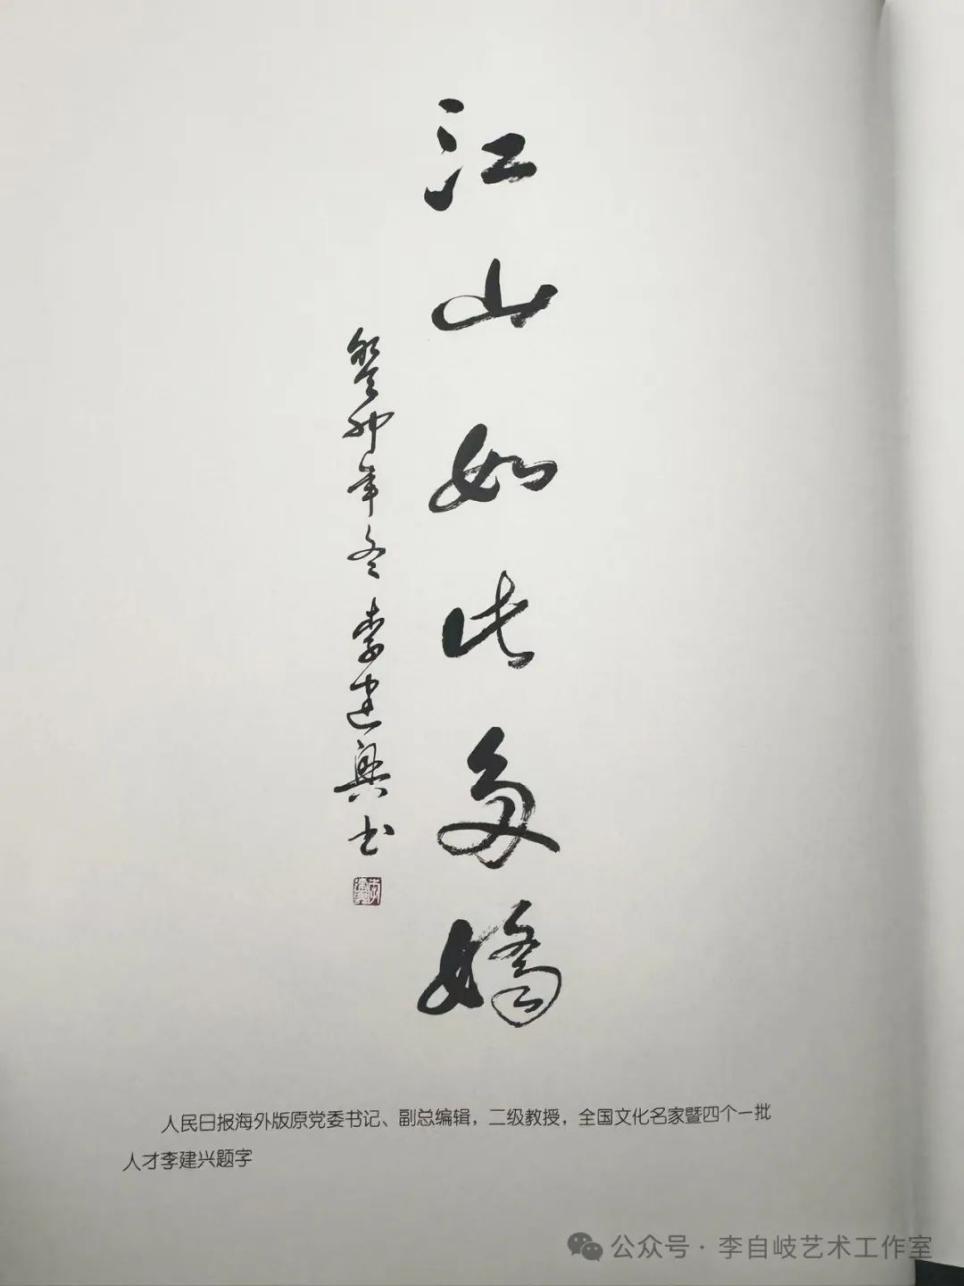 江山如此多嬌
癸卯年冬李建興书
人民日报海外版原党委书记、副总编辑，二级教授，全国文化名家暨四个一批
人才李建兴题字
公众号·李自岐艺术工作室